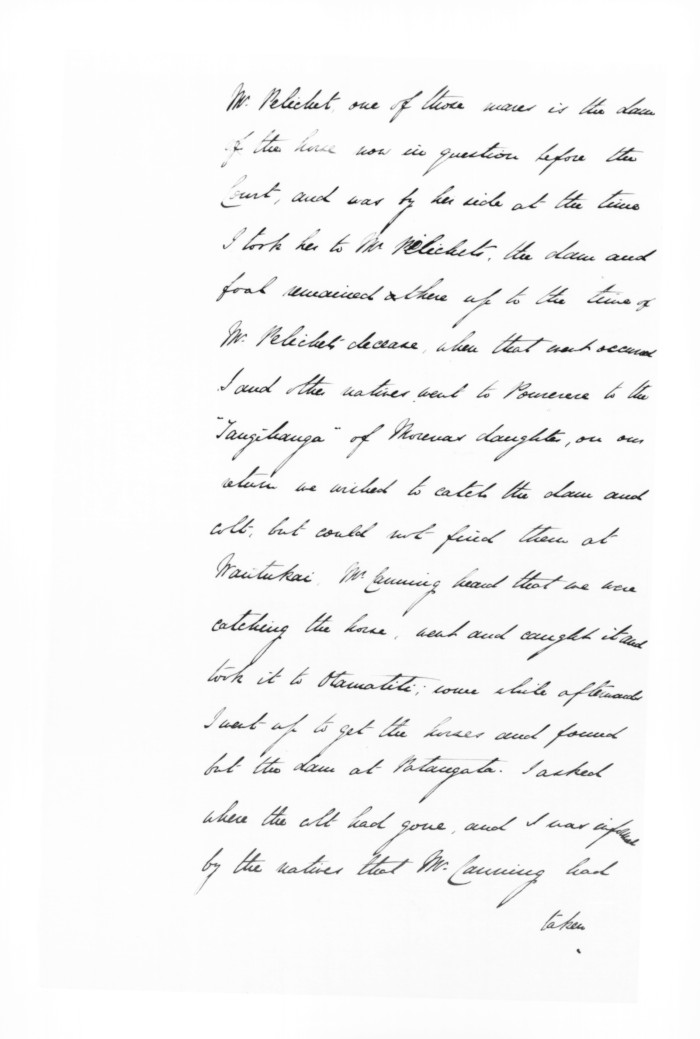 Mr. Pelichet, one of those mares is the dam
of the horse now in question before the
Court, and was by her side at the time
I took her to Mr Pelichets, the dam and
foal remained there up to the time of
Mr. Pelichets decease, when that event occurred
I and other natives went to Pourerere to the
"Tangihanga" of Morenas daughter, on our
return we wished to catch the dam and
colt, but could not find them at
Waitukai. Mr Canning heard that we were
catching the horse, went and caught it and
took it to Otamatiti; some while afterwards
I went up to get the horses and found
but the dam at Patangata. I asked
where the colt had gone, and I was informed
by the natives that Mr. Canning had
taken